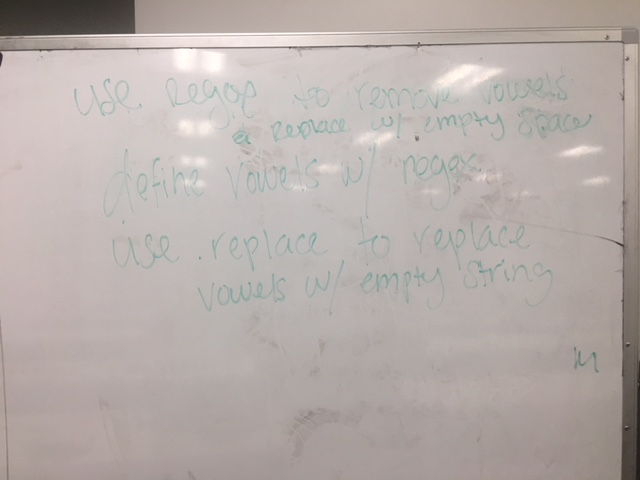 use regex to remove vowels
& replace w/ empty space
define vowels w/ regex
use .replace to replace
vowels w/ empty string